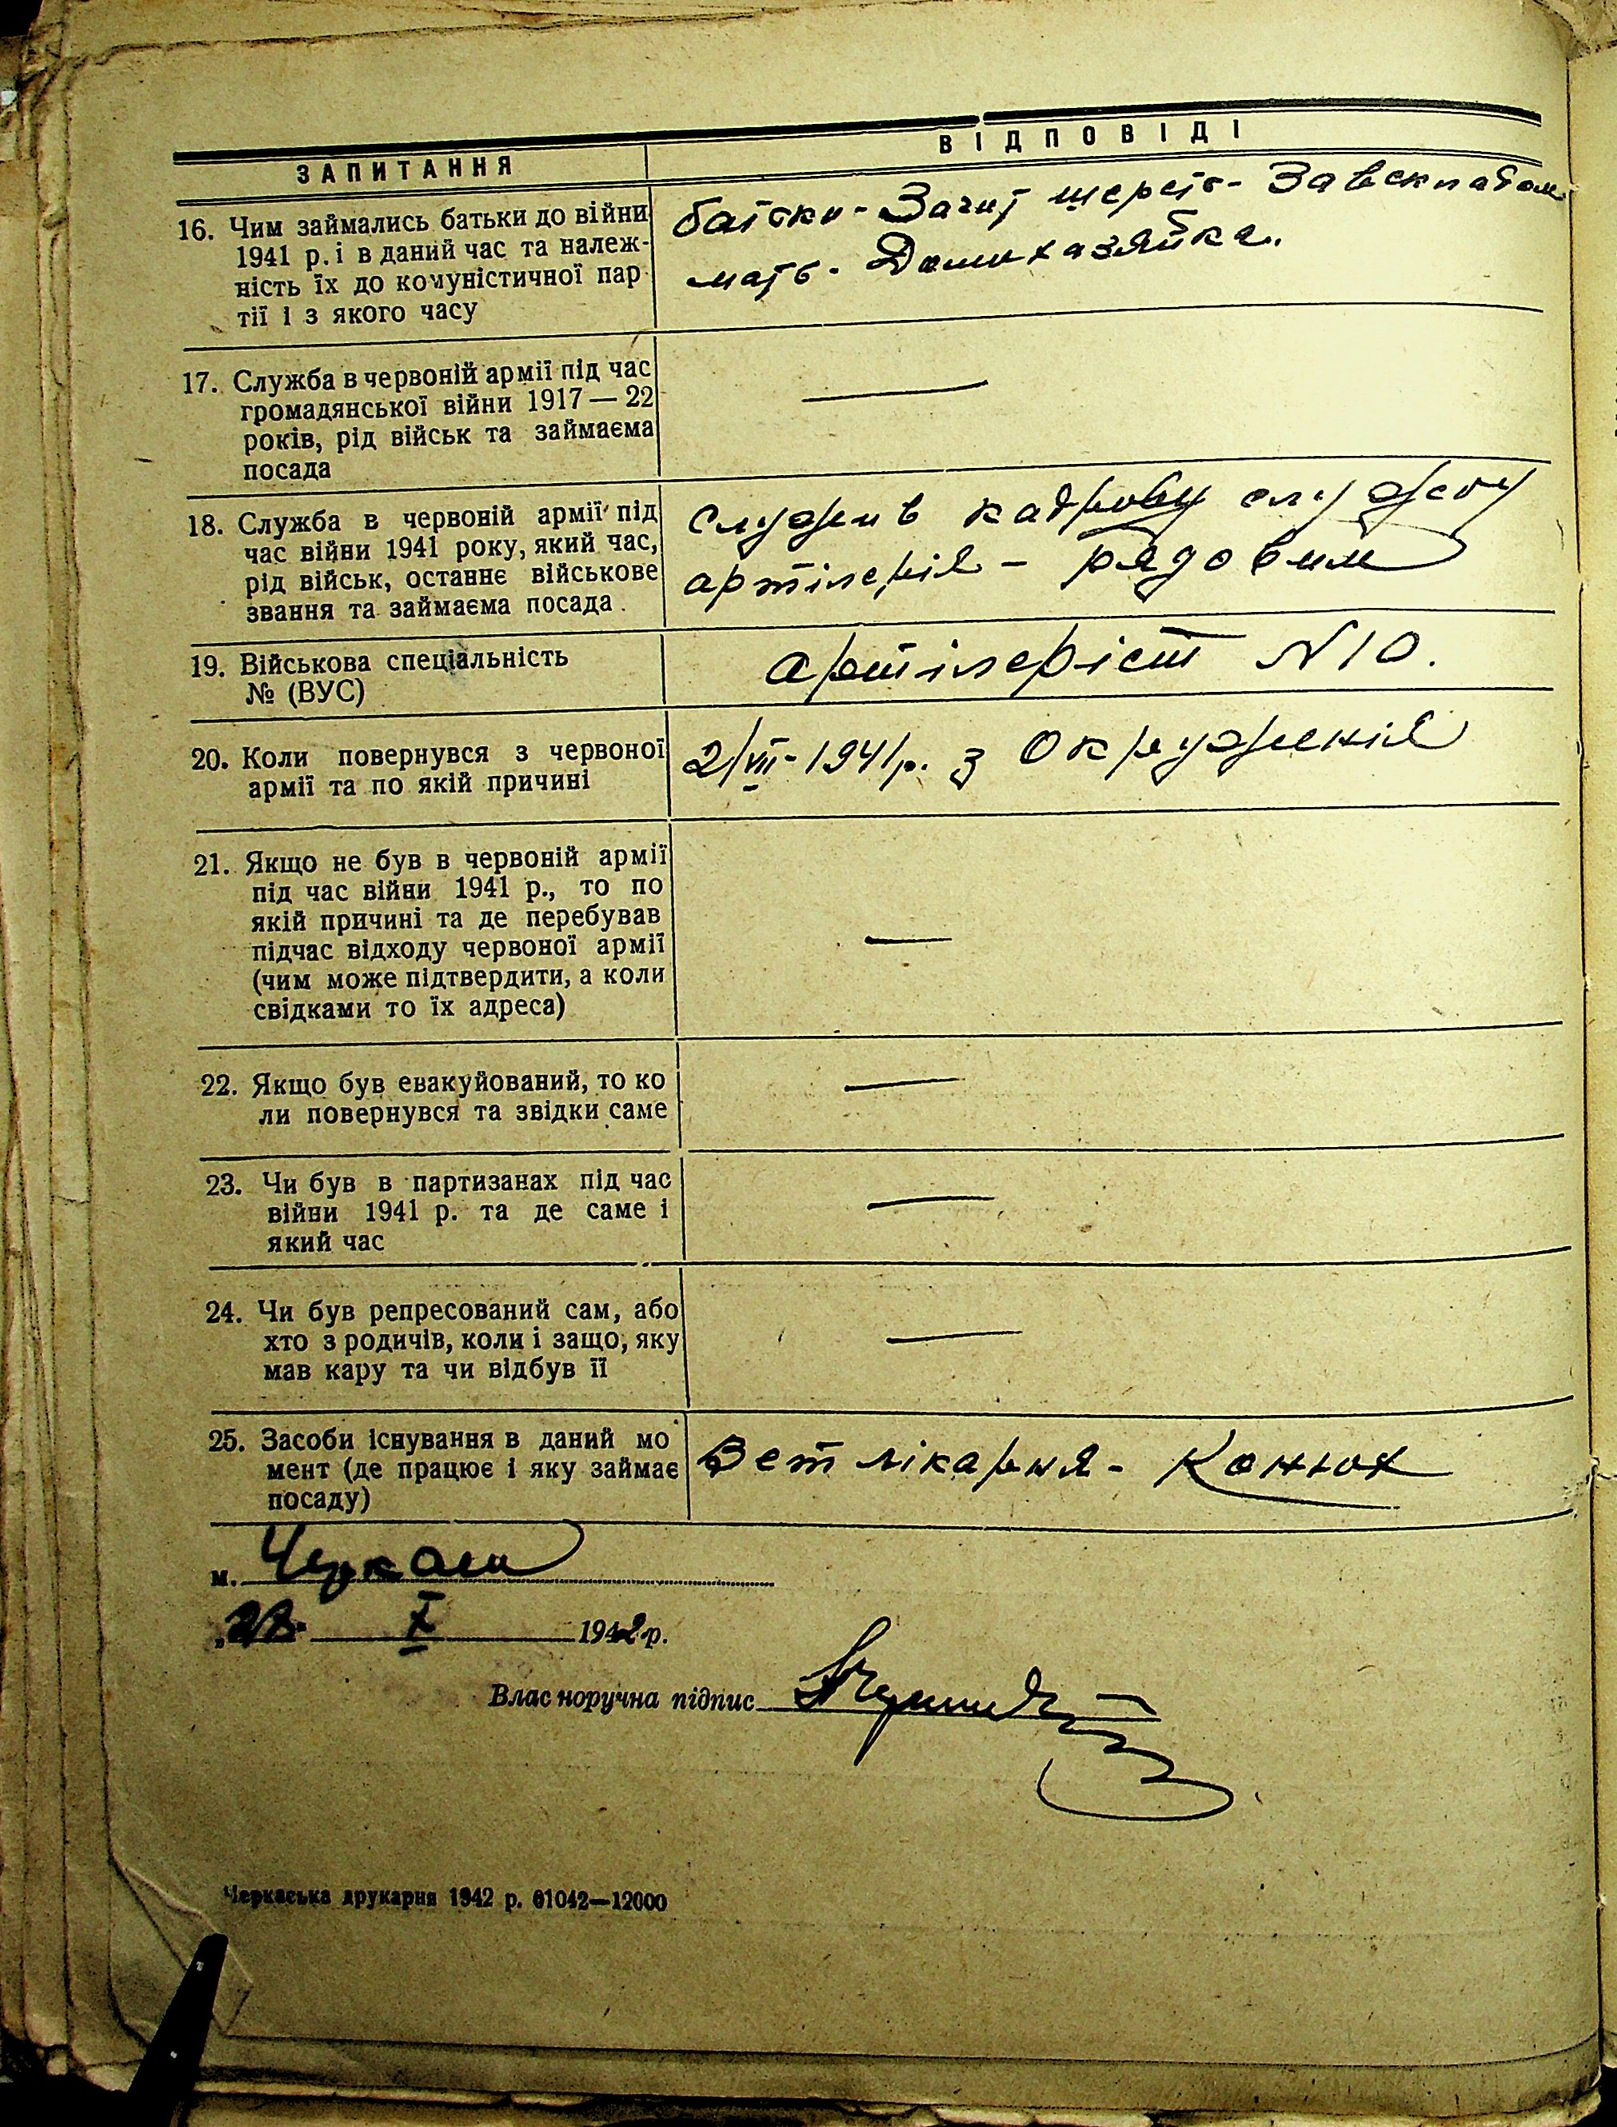 ЗАПИТАННЯ
ВІДПОВІДІ
16. Чим займались батьки до війни
1941 р. і в даний час та належ-
ність їх до комуністичної пар
тії і з якого часу
батьки - Загит шерсть - Завскладом
мать - Домихазяйка.
17. Служба в червоній армії під час
громадянської війни 1917 — 22
років, рід військ та займаєма
посада
—
18. Служба в червоній армії під
час війни 1941 року, який час,
рід військ, останнє військове
звання та займаєма посада.
Служив кадрову службу
артілерія - рядовим
19. Військова спеціальність
№ (ВУС)
Артілеріст N 10.
20. Коли повернувся з червоної
армії та по якій причині
2/VIII - 1941 р. з Окруженія
21. Якщо не був в червоній армії
під час війни 1941 р., то по
якій причині та де перебував
підчас відходу червоної армії
(чим може підтвердити, а коли
свідками то їх адреса)
—
22. Якщо був евакуйований, то ко
ли повернувся та звідки саме
—
23. Чи був в партизанах під час
війни 1941 р. та де саме і
який час
—
24. Чи був репресований сам, або
хто з родичів, коли і защо, яку
мав кару та чи відбув її
—
25. Засоби існування в даний мо
мент (де працює і яку займає
посаду)
Вет лікарня - Конюх
м. Черкаси
„28" X 1942 р.
Власноручна підпис
Черкаська друкарня 1942 р. 01042—12000